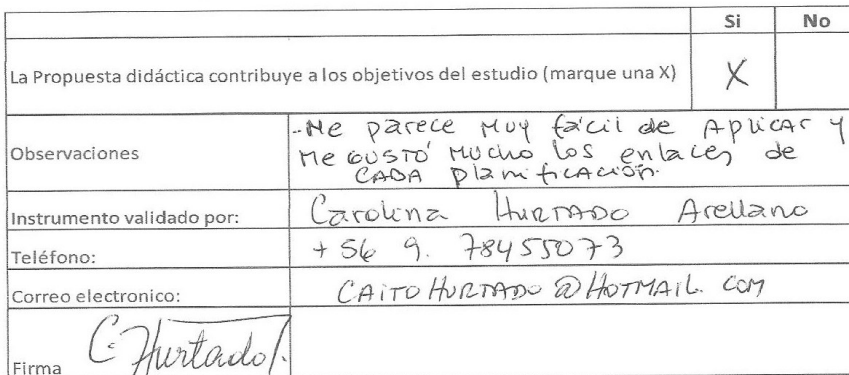 Si No
La Propuesta didáctica contribuye a los objetivos del estudio (marque una X) X
Observaciones
-Me parece muy fácil de Aplicar y
me GUSTÓ mucho los enlaces de
CADA planificación.
Instrumento validado por: Carolina Hurtado Arellano
Teléfono: +56 9. 78455073
Correo electronico: CAITOHURTADO@HOTMAIL.COM
Firma C. Hurtado